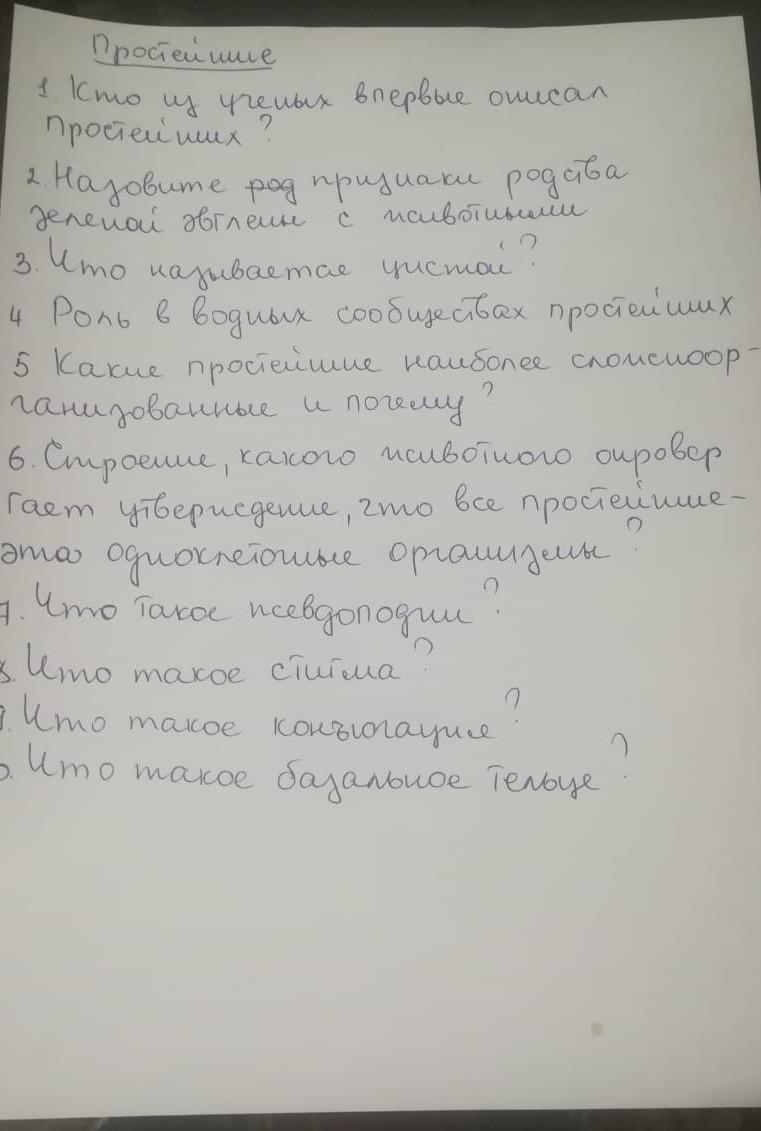 Простейшие
1. Кто из ученых впервые описал
Простейших?
2. Назовите род признаки родства
зеленой эвглены с животными
3. Что называется цистой?
4 Роль в водных сообществах простейших
5 Какие простейшие наиболее сложноор-
ганизованные и почему?
6. Строение, какого животного опровер
гает утверждение, что все простейшие-
это одноклеточные организмы?
7. Что такое псевдоподии?
8. Что такое стигма?
9. Что такое конъюгация?
0. Что такое базальное тельце?